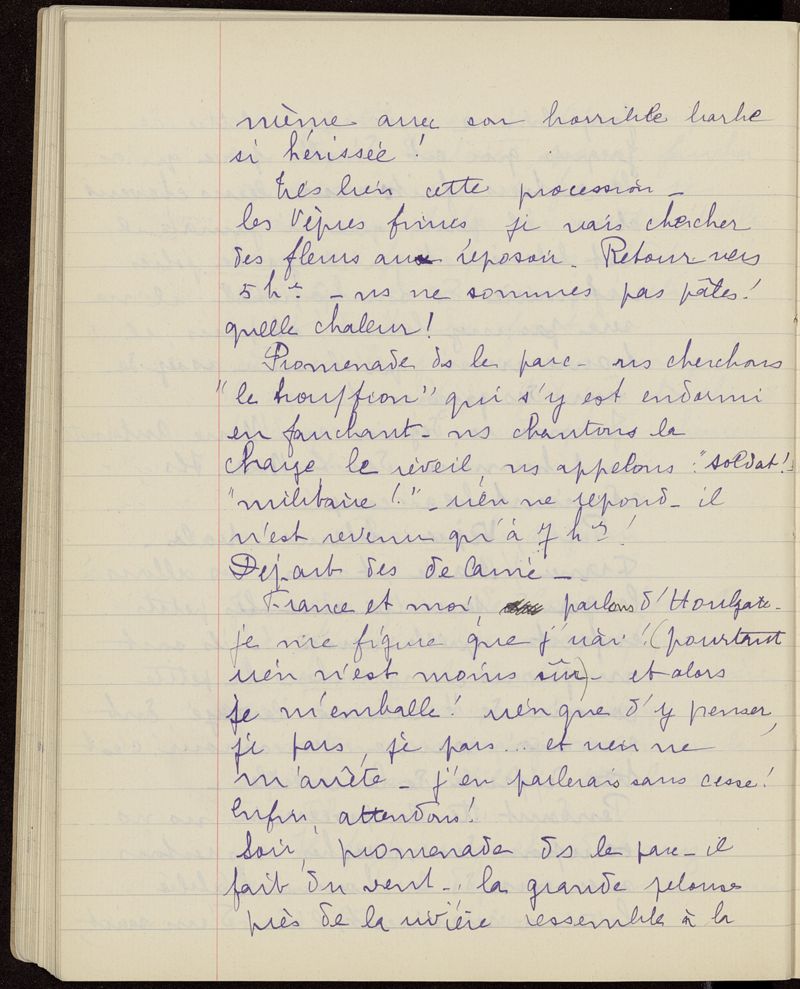 même avec son horrible barbe
si hérissée !
Très bien cette procession -
les Vêpres finies je vais chercher
des fleurs au reposoir. Retour vers
5 hres - ns ne sommes pas pâles !
quelle chaleur !
Promenade ds le parc - ns cherchons
"le trouffion" qui s'y est endormi
en fauchant - ns chantons la
charge, le réveil, ns appelons : "soldat !-
"militaire !" - rien ne répond - il
n'est revenu qu'à 7 hres !
Départ des de Carné -
France et moi parlons d'Houlgate -
je me figure que j'irai ! (pourtant
rien n'est moins sûr) - et alors
je m'emballe ! rien que d'y penser,
je pars, je pars... et rien ne
m'arrête - j'en parlerais sans cesse !
Enfin, attendons !
Soir, promenade ds le parc - il
fait du vent - la grande pelouse
près de la rivière ressemble à la